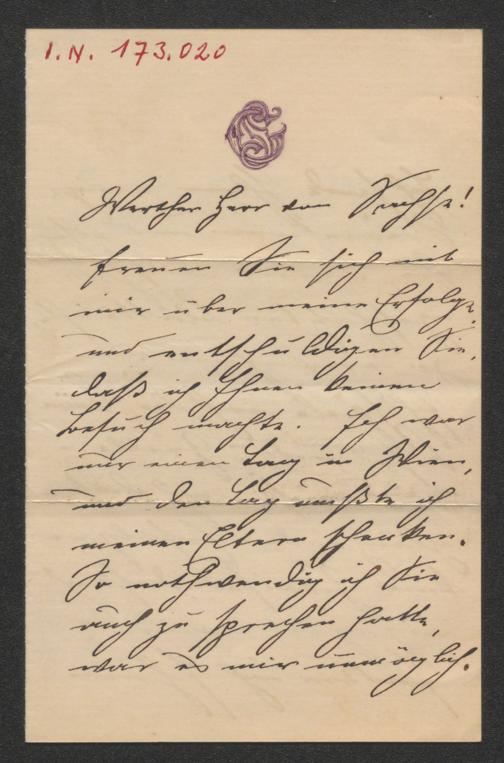 I.N. 173.020
Werther Herr von Sachse!
Freuen Sie sich mit
mir über meine Erfolge
und entschuldigen Sie,
daß ich Ihnen keinen
Besuch machte. Ich war
nur einen Tag in Wien,
und den Tag mußte ich
meinen Eltern schenken.
So nothwendig ich Sie
auch zu sprechen hatte,
war es mir unmöglich.